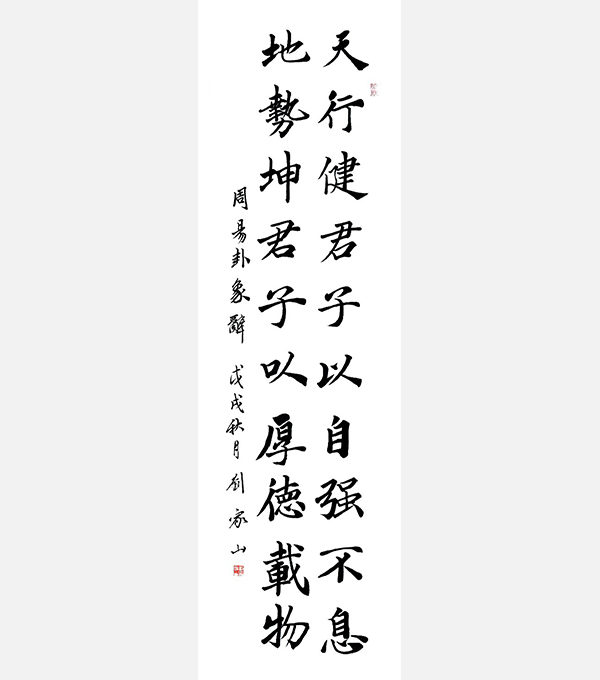 天行健君子以自强不息
地勢坤君子以厚德載物
周易卦象辭 戊戌秋月劉家山